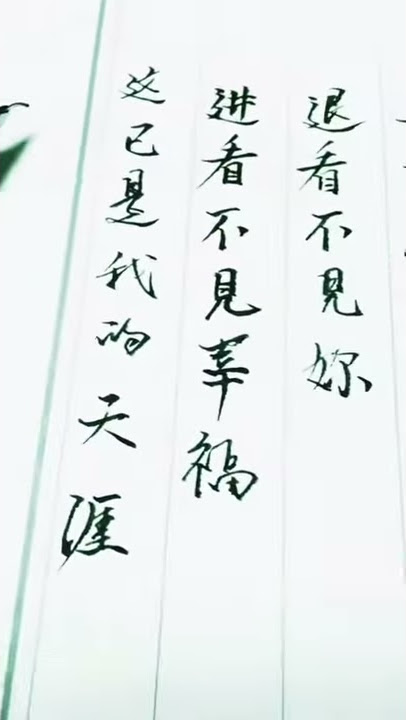 退看不見妳
进看不見幸福
这已是我的天涯